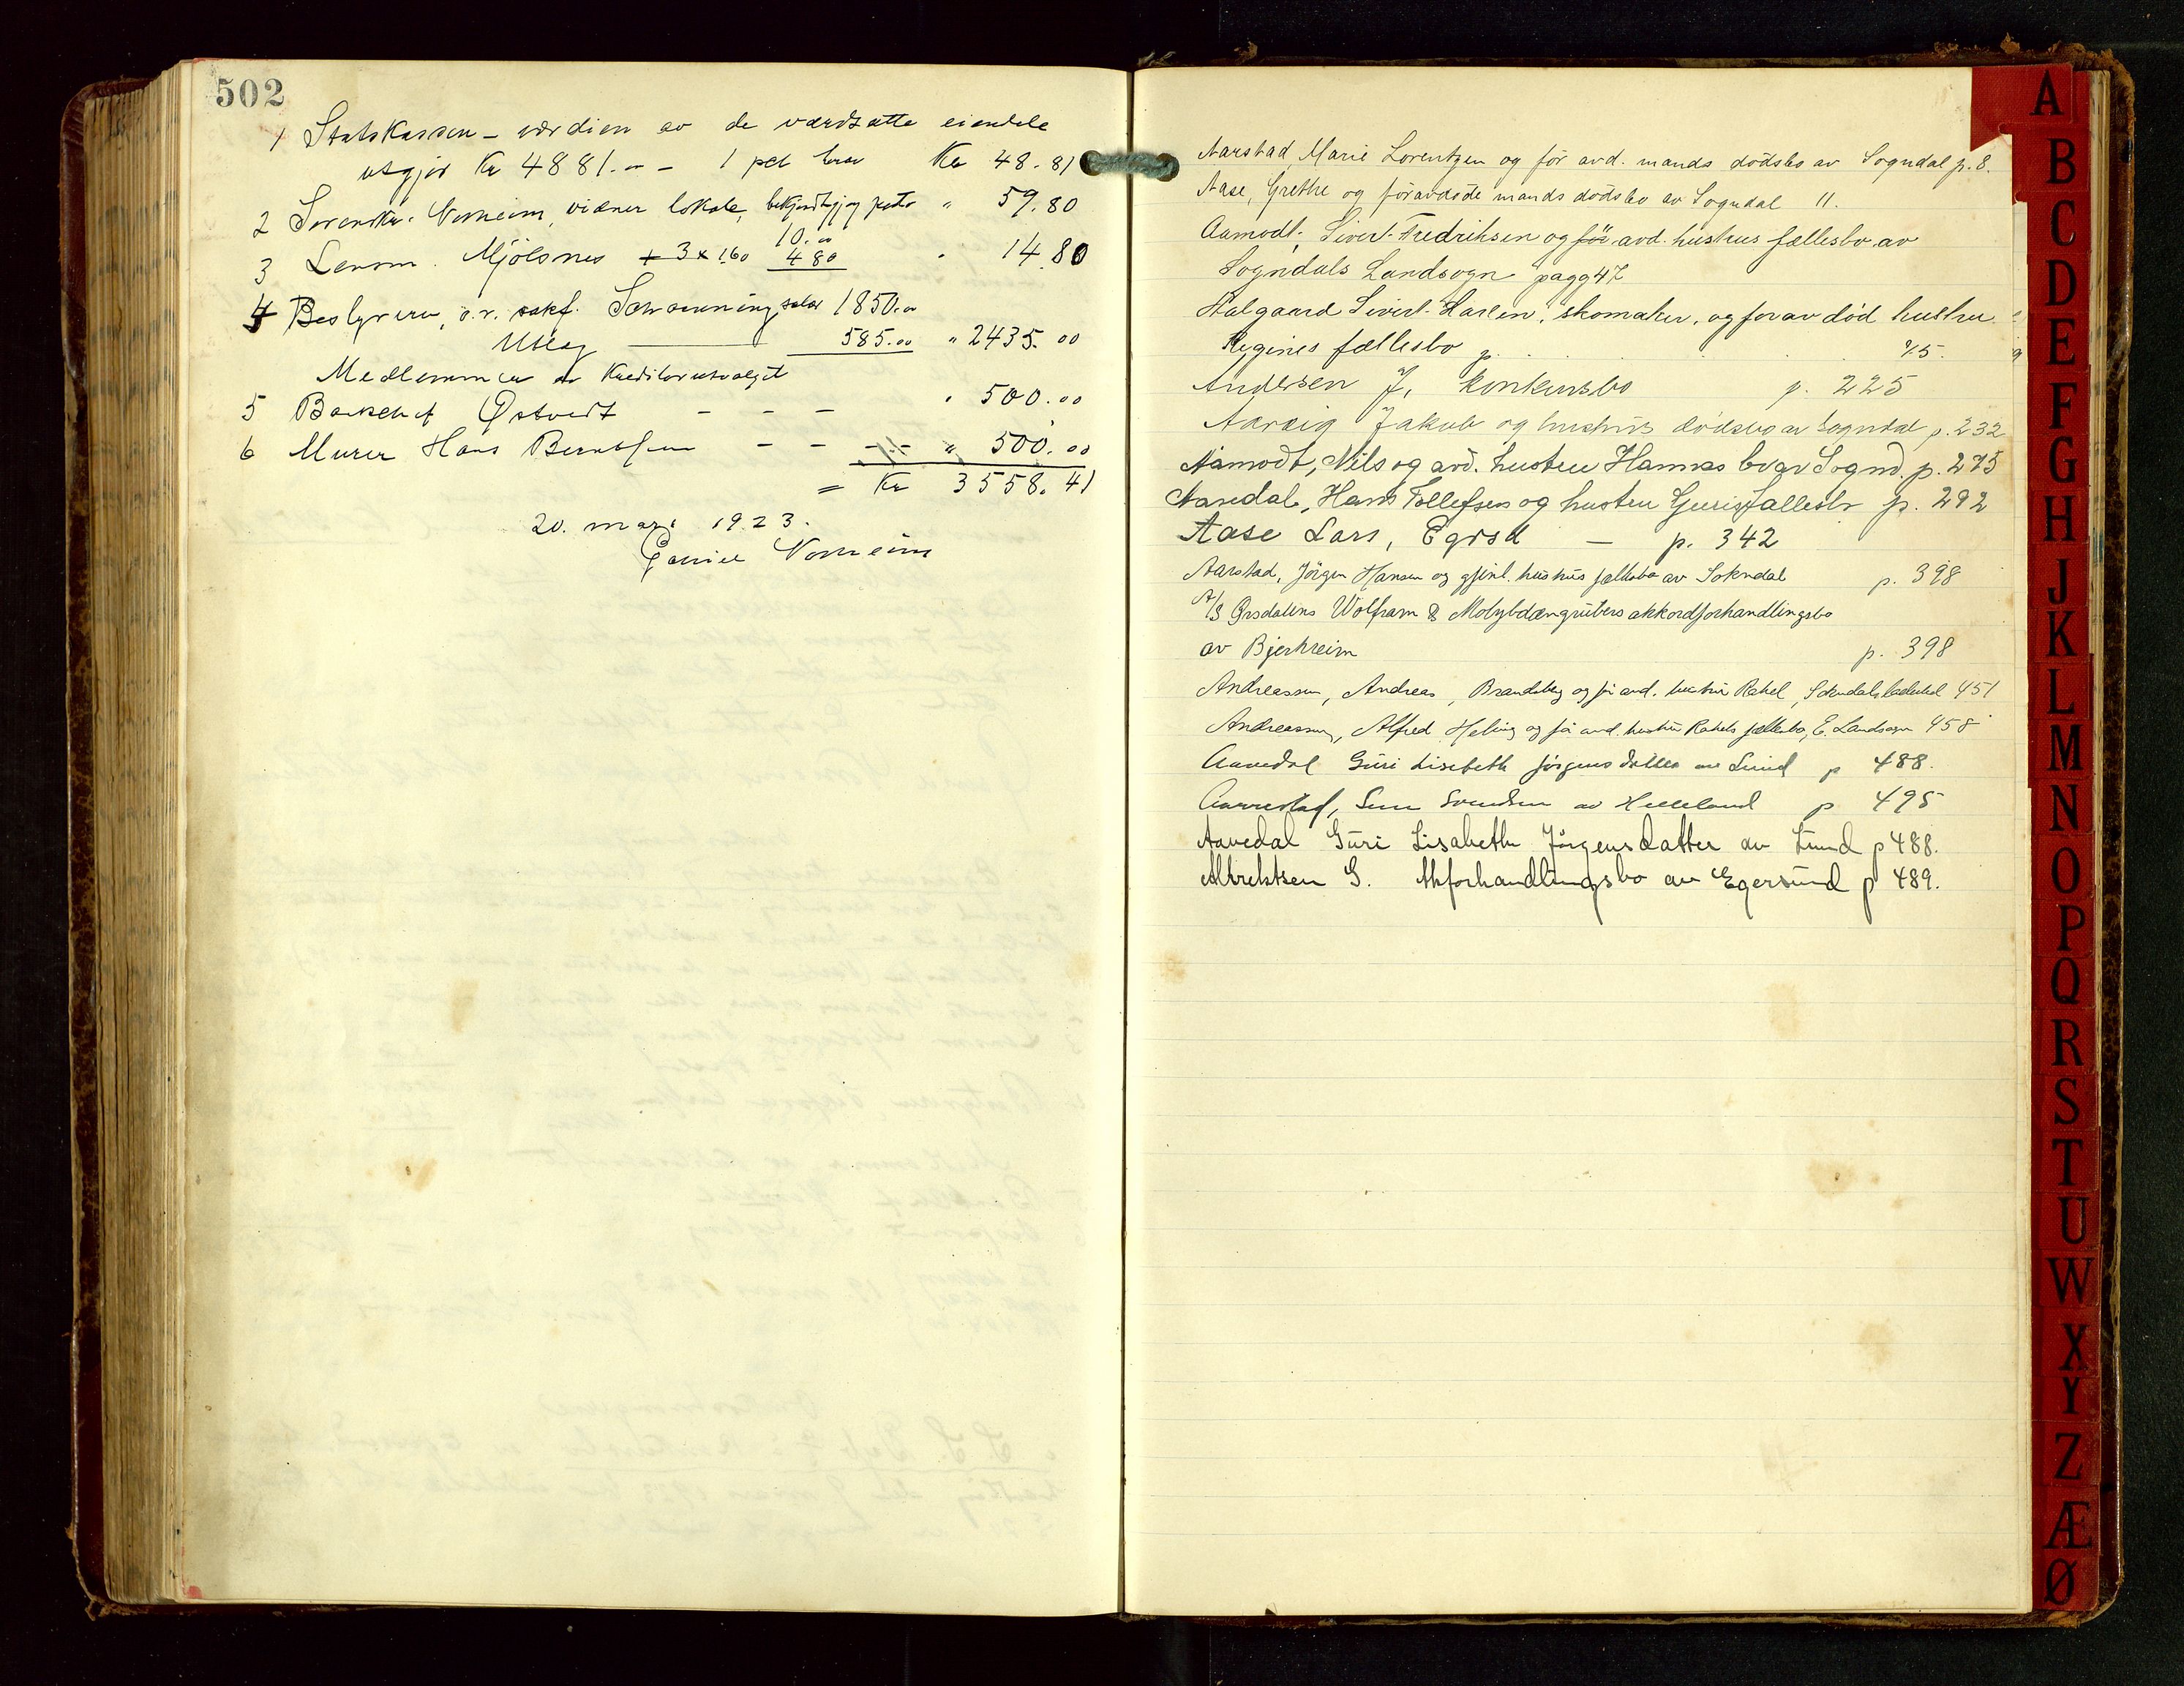 502
1 Statskassen - værdien av de værdsatte eiendele
utgjør Kr 4881.00 - 1 pct herav Kr 48.81
2 Sorenskr. Norheim, vidner lokale, bekjendtgj og porto " 59.80
10.00
3 Lensm. Mjölsnes + 3 x 1.60 4 80 " 14.80
4 Bestyreren, o.r. sakf. Schrøuning salar 1850.00
Utlæg 585.00 " 2435.00
Medlemmer av Kreditorutvalget
5 Bankchef Østvedt - - - " 500.00
6 Murer Hans Berntsen - - - - " 500.00
= Kr 3558.41
20. mars 1923.
Norheim
Aarstad, Marie Lorentzen og för avd. mands dödsbo av Sogndal p. 8.
Aase, Grethe og föravdöde mands dödsbo av Sogndal 11.
Aamodt, Sivert Fredriksen og för avd. hustrus fællesbo av
Sogndals Landsogn pagg 47
Aalgaard Sivert Larsen, skomaker, og forav död hustru
Regines fællesbo p. . . . . . 75.
Andersen J, konkursbo p. 225
Aarvig Jakob og hustrus dödsbo av Sogndal p. 232
Aamodt, Nils og avd. hustru Hannas bo av Sognd. p. 275
Aavedal, Hans Tollefsen og hustru Guris fællesbo p. 292
Aase Lars, Egrsd - p. 342
Aarstad, Jörgen Hansen og gjenl. hustrus fællesbo av Sokndal p. 398
A/S Ørsdalens Wolfram & Molybdængrubers akkordforhandlingsbo
av Bjerkreim p. 398
Andreassen, Andreas, Brandsberg og för avd. hustru Rakel, Sokndals ladested 451
Andreassen, Alfred Helvig og för avd. hustru Rakels fællesbo, E. Landsogn 458
Aavedal Guri Lisebeth Jörgensdatter av Lund p 488.
Aarrestad, Svendsen av Helleland p 495
Aavedal Guri Lisabeth Jörgensdatter av Lund p 488.
Albrektsen G. Akforhandlingsbo av Egersund p 489.
A
B
C
D
E
F
G
H
J
K
L
M
N
O
P
Q
R
S
T
U
W
X
Y
Z
Æ
Ø